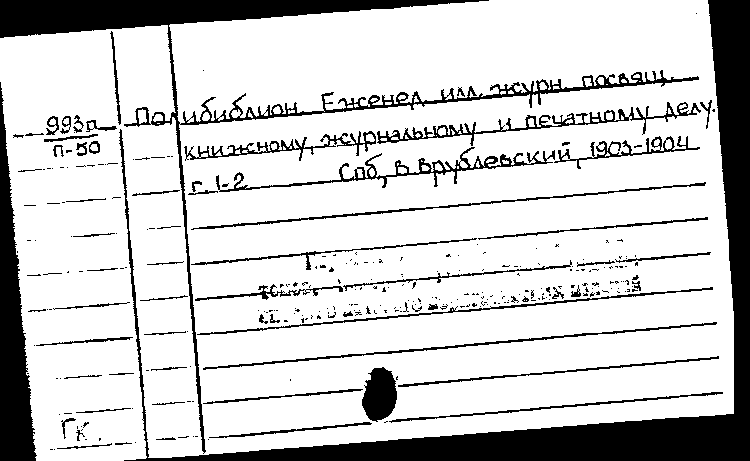 993п
п-50
Полибиблион. Еженед. илл. журн. посвящ.
книжному, журнальному и печатному делу.
г. 1-2 Спб, В. Врублевский, 1903-1904
томов.
Гк.